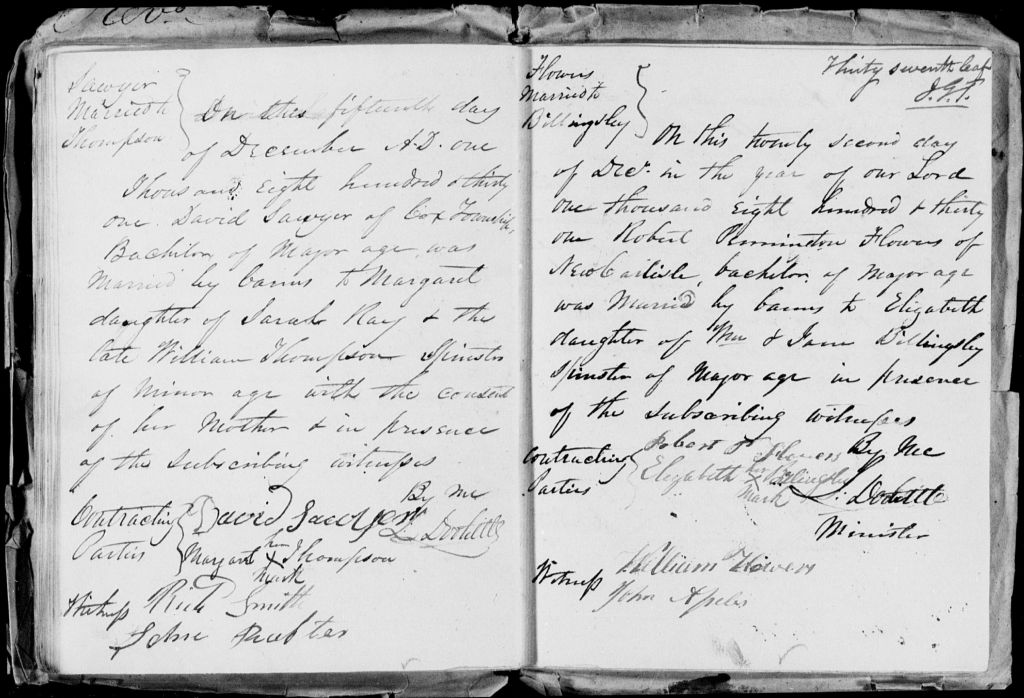 Sawyer
Married to
Thompson
On this fifteenth day
of December A.D. one
Thousand Eight hundred & thirty
one David Sawyer of Cox Township,
Bachelor of Major age was
Married by banns to Margaret
daughter of Sarah Ray & the
late William Thompson Spinster
of Minor age with the consent
of her Mother & in presence
of the Subscribing witnesses
By me
Contracting
Parties
David Sawyer
L. Doolittle
Margaret her X mark Thompson
Witness
Richd Smith
John
Thirty seventh leaf
Flowers
Married to
Billingsley
On this twenty second day
of Decr. in the year of our Lord
one thousand Eight hundred & thirty
one Robert Pennington Flowers of
New Carlisle, bachelor of Major age
was Married by banns to Elizabeth
daughter of Wm & Jane Billingsley
Spinster of Major age in presence
of the Subscribing witnesses
Contracting
Parties
Robert P Flowers
By Me
Elizabeth her X mark Billingsley
L. Doolittle
Minister
Witness
William Flowers
John